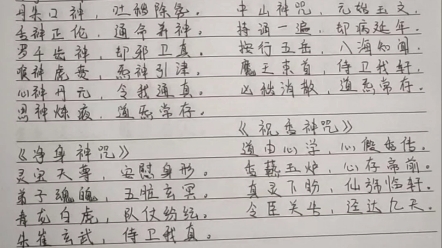 丹朱口神，吐秽除氛。
舌神正伦，通命养神。
罗千齿神，却邪卫真。
喉神虎贲，炁神引津。
心神丹元，令我通真。
思神炼液，道炁常存。
《净身神咒》
灵宝天尊，安慰身形。
弟子魂魄，五脏玄冥。
青龙白虎，队仗纷纭。
朱雀玄武，侍卫我真。
中山神咒，元始玉文。
持诵一遍，却病延年。
按行五岳，八海知闻。
魔王束首，侍卫我轩。
凶秽消散，道炁常存。
《祝香神咒》
道由心学，心假香传。
香爇玉炉，心存帝前。
真灵下盼，仙旆临轩。
令臣关告，迳达九天。